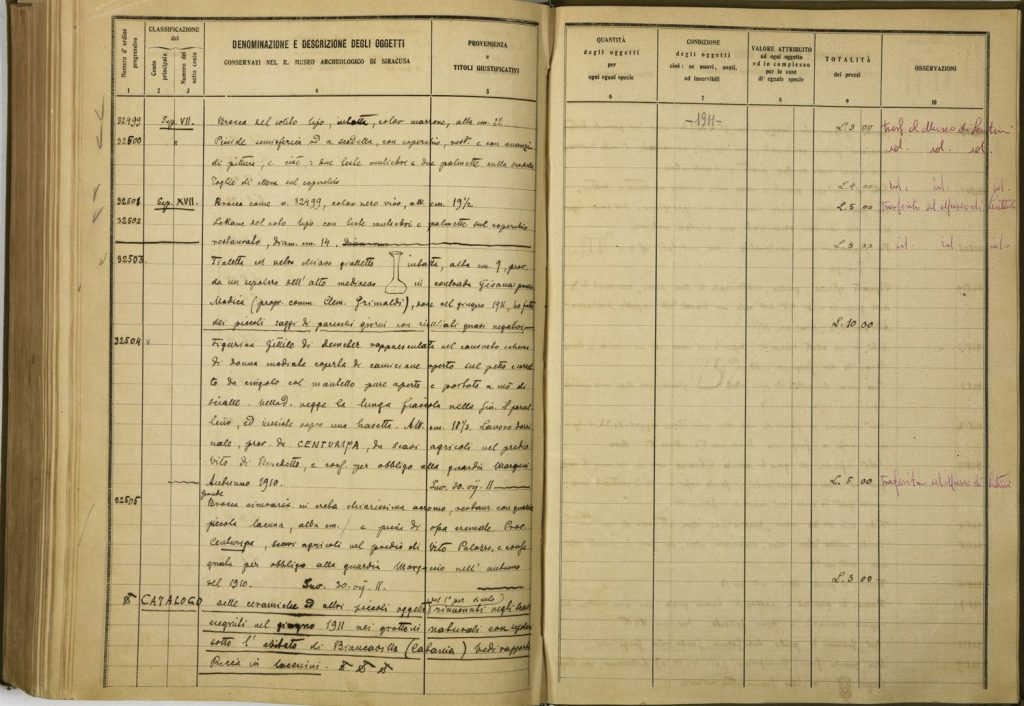 Numero d'ordine progressivo
CLASSIFICAZIONE del
Conto principale
Numero del sotto conto
DENOMINAZIONE E DESCRIZIONE DEGLI OGGETTI
CONSERVATI NEL R. MUSEO ARCHEOLOGICO DI SIRACUSA
PROVENIENZA
e
TITOLI GIUSTIFICATIVI
1 2 3 4 5
32499 Sep. VII. Brocca del solito tipo, intatta, color marrone, alta cm. 22
32500 " Pisside emisferica ad a scodella, con coperchio, rest. e con avanzi
di pittura, e cioè: due teste muliebri e due palmette sulla scodella
foglie di sul coperchio
32501 Sep. XVII. Brocca come n. 32499, color nero vivo, alt. cm. 19 1/2
32502 Lekane del noto tipo con teste muliebri e palmette sul coperchio
restaurato, diam. cm. 14.
32503 Fialetta di vetro chiaro intatta, alta cm. 9, prov.
da un sepolcro dell'alto medioevo in contrada Gisana presso
Modica (propr. comm. Clem. Grimaldi), dove nel giugno 1911, ho fatto
dei piccoli saggi di parecchi giorni con risultati quasi negativi
32504 Figurina fittile di rappresentata nel consueto schema
di donna coperta di aperto sul petto e
to da cingolo col mantello pure aperto e portato a mò di
scialle. regge la lunga fiaccola nella sin. il porcel-
lino, ed insiste sopra una basetta. Alt. cm. 18 1/2. Lavoro dozzi
nale, prov. da CENTURIPA, da scavi agricoli nel predio
Vito di Benedetto, e conf. per obbligo alla guardia
Autunno 1910. Inv. 30. vij. 11
32505 grande
Brocca cineraria in creta chiarissima acromo, restaur. con qualche
piccola lacuna, alta cm. / e piena di ossa cremate. Prov.
Centuripa, scavi agricoli nel predio di Vito Palazzo, e conse-
gnata per obbligo alla guardia nell' autunno
del 1910. Inv. 30. vij. 11.
CATALOGO delle ceramiche ed altri piccoli oggetti (del 1° per. siculo) rinvenuti negli scavi
eseguiti nel giugno 1911 nei grottoni naturali con
sotto l' abitato di Biancavilla (Catania) Vedi rapporto
in taccuini.
QUANTITÀ
degli oggetti
per
ogni egual specie
CONDIZIONE
degli oggetti
cioè: se nuovi, usati,
od inservibili
VALORE ATTRIBUITO
ad ogni oggetto
ed in complesso
per le cose
di eguale specie
TOTALITÀ
dei prezzi
OSSERVAZIONI
6 7 8 9 10
-1911-
L. 3 00 trasf. al Museo di Lentini
id. id. id.
L. 4 00 id. id. id.
L. 5 00 trasferito al Museo di Lentini
L. 3 00 id. id. id.
L. 10 00
L. 5 00 trasferita al Museo di Lentini
L. 3 00